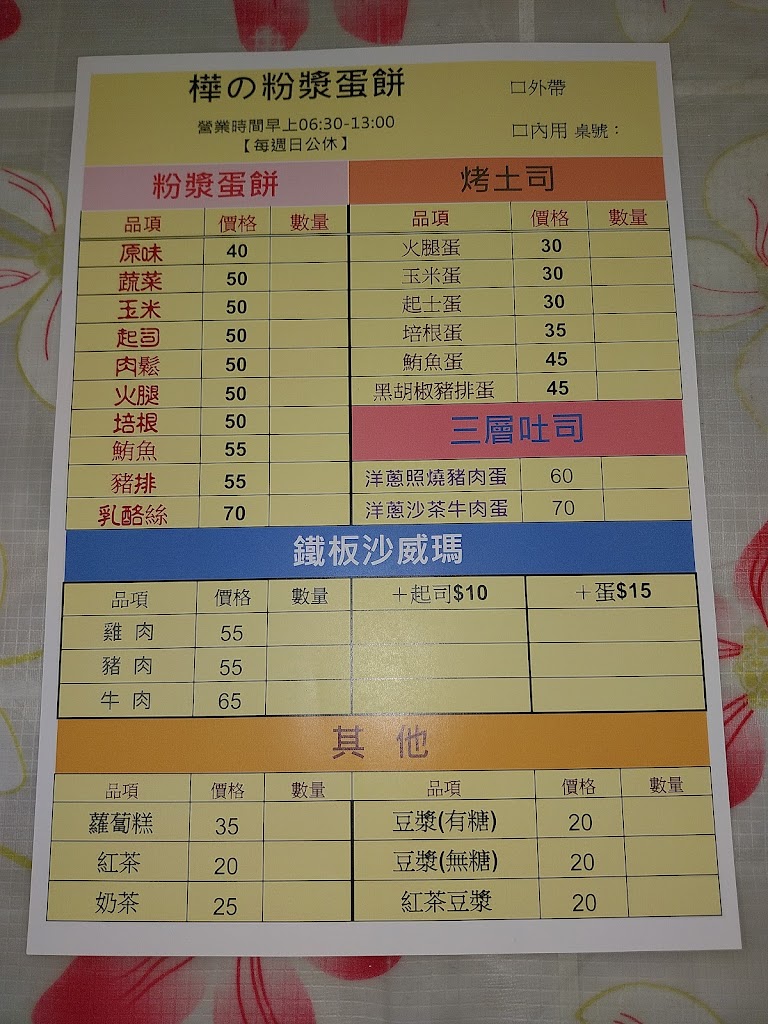 樺の粉漿蛋餅
□外帶
營業時間早上06:30-13:00
□內用 桌號：
【每週日公休】
粉漿蛋餅
品項 價格 數量
原味 40
蔬菜 50
玉米 50
起司 50
肉鬆 50
火腿 50
培根 50
鮪魚 55
豬排 55
乳酪絲 70
烤土司
品項 價格 數量
火腿蛋 30
玉米蛋 30
起士蛋 30
培根蛋 35
鮪魚蛋 45
黑胡椒豬排蛋 45
三層吐司
洋蔥照燒豬肉蛋 60
洋蔥沙茶牛肉蛋 70
鐵板沙威瑪
品項 價格 數量 ＋起司$10 ＋蛋$15
雞 肉 55
豬 肉 55
牛 肉 65
其 他
品項 價格 數量 品項 價格 數量
蘿蔔糕 35 豆漿(有糖) 20
紅茶 20 豆漿(無糖) 20
奶茶 25 紅茶豆漿 20